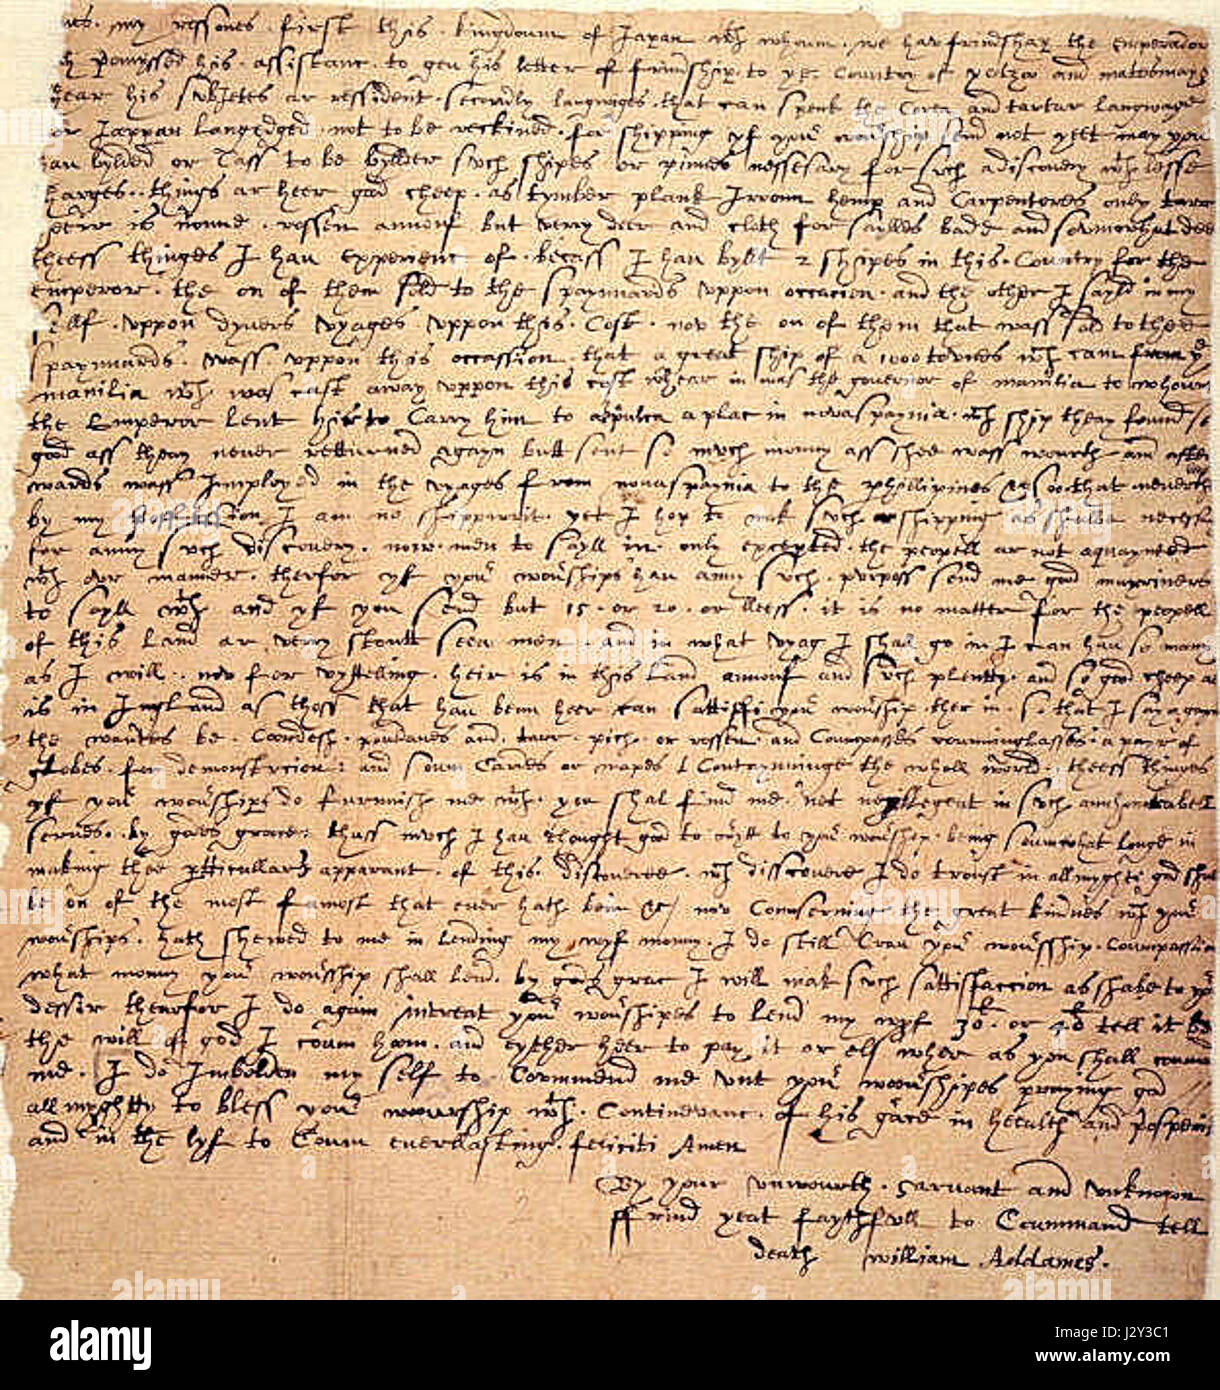 my ressones first this kingdoum of Japan wth whoum we hav frindshap the emperador
promyssed his assistanc to gev his letter of frindship to ye Country of and
hear his subietes ar ressident secondly langwiges that can speut the Corea and tartar langwage
or Jappan Langwdged not to be reckined for shipping yf your wourship send not yeet may you
hav bylded or Cass to be bylded such shipes or pines nessesary for such a discovery wth lesse
charges things ar heer good cheep as tymber plank Irroun hemp and Carpenteres only tarr
heir is noune rossen annouf but verry deer and cloth for saylles badd and soumwhat deer
theess thinges I hav experienc of becass I hav byllt 2 shipes in this Country for the
emperore the on of them sold to the Spaynnards uppon occacion and the other I sayld in my
self uppon dyvers vyages uppon this Cost nov the on of them that wass sold to thee
spaynnards wass uppon this occassion that a great ship of a 1000 tovnes wch cam from ye
manilia wch was cast away uppon this cost whear in was the governor of manilia to whoum
the Emperor lent his to Carry him to acpulca a plac in novaspaynia wch ship theay found so
good ass theay never retturned agayn butt sent so much monny ass shee wass wourth and after
wards wass Imployed in the vyages from novaspaynia to the phillipines so that neverth
by my proffession I am no shippwrit yet I hop to mak such shipping as shalbe necess
for anny such discovery now men to sayll in only excepted the peopell ar not aquaynted
wth our manner therfor yf your wourships hav anny such purposs send me good marriners
to sayll wth and yf you send but 15 or 20 or lless it is no matter for the peopell
of this Land ar verry stoutt seea men and in what vyag I shall go in I can hav so many
as I will nov for vyttelling heir is in this Land annouf and such plentty and so good cheep as
is in Ingland as thoss that hav benn heer can sattiffi your wourship ther in so that I say agayn
the wantes be Cordesh pouldaves and tarr pich or rossen and Coumpasses rounninglasses a payr of
globes for demonstrcion and soum Cardes or mapes Contayninge the wholl world theess thinges
yf your wourships do furnnish me wth you shal find me not neglegent in such an
serves by gods grace thuss much I hav thought good to writ to your wourship being soumwhat longe in
making thee pticullars apparant of this discoveree wch disscovere I do troust in allmyghti god shal
be on of the most famost that ever hath bein &c nov Counserning the great kindnes wch your
wourships hath shewed to me in lending my wyf monny I do still Crav your wourship Coumpassion
what monny your wourship shall lend by gods grac I will mak such sattisfaccion as shalbe to your
dessir therfor I do again intreat your wourshipes to lend my wyf 30l or 40l tell it be
the will of god I coum hoom and eyther heer to pay it or els wher as you shall coummand
me I do Imbolden my self to Coummend me unt your wourshipes praying god
allmyghtty to bless your wourship wth Continewanc of his grace in heealth and prosperit
and in the lyf to Coum everllasting feliciti Amen
By your unwourth sarvant and unknown
ffrind yeat faythfull to Coummand tell
death William Addames.
alamy
Image ID: J2Y3C1
www.alamy.com